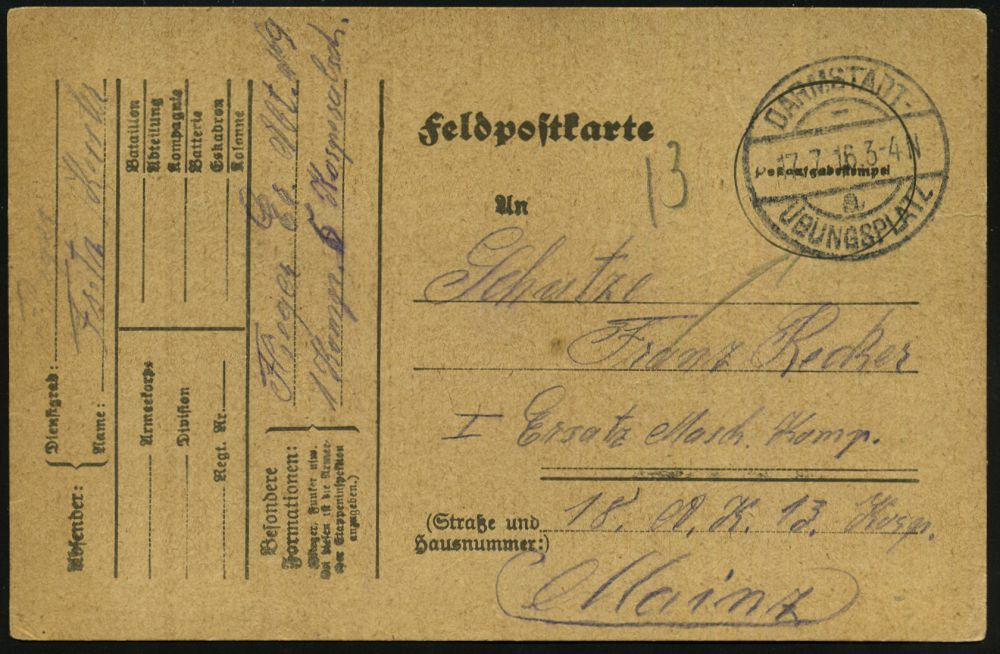 Feldpostkarte
13
DARMSTADT-
17.7.16.3-4 N
a
ÜBUNGSPLATZ
An
Schütze
Franz Recker
I Ersatz Masch. Komp.
18. A. K. 13. Korp.
(Straße und
Hausnummer:)
Mainz
Absender:
Dienstgrad:
Name: Fritz
Bataillon
Abteilung
Kompagnie
Batterie
Eskadron
Kolonne
Armeekorps
Division
Regt. Nr.
Besondere
Formationen:
(Flieger, Funker usw.
Bei diesen ist die Armee-
oder Etappeninspektion
anzugeben.)
Flieger Er. Abt. No 9
1 Komp. 5 Korporalsch.